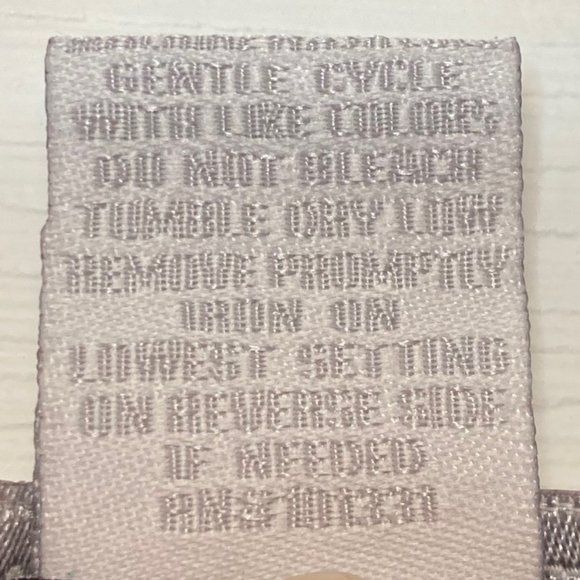 GENTLE CYCLE
WITH LIKE COLORS
DO NOT BLEACH
TUMBLE DRY LOW
REMOVE PROMPTLY
IRON ON
LOWEST SETTING
ON REVERSE SIDE
IF NEEDED
RN#101331